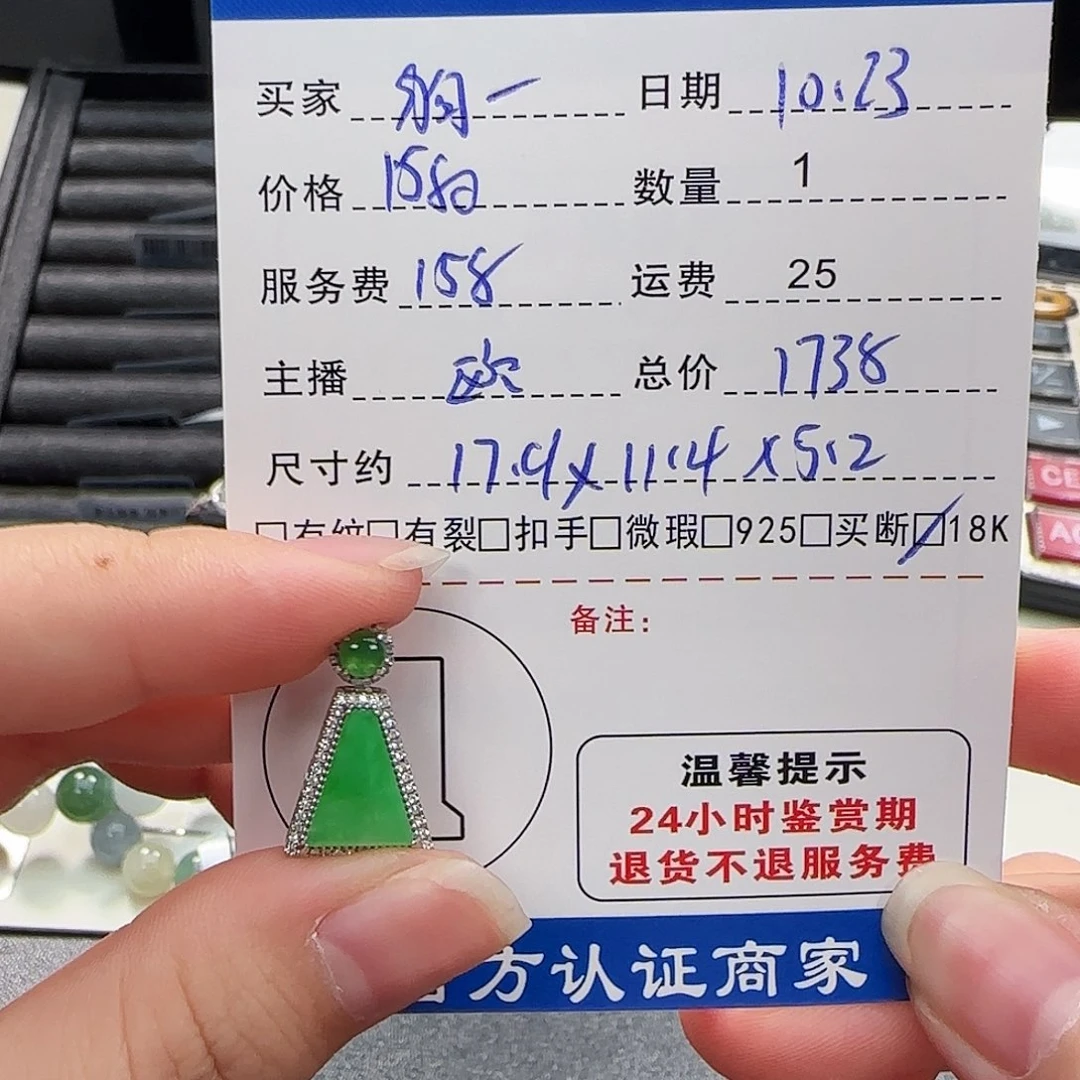 买家 一 日期 10.23
价格 1580 数量 1
服务费 158 运费 25
主播 欧 总价 1738
尺寸约 17.9x11.4x5.2
□有纹□有裂□扣手□微瑕□925□买断☑18K
备注：
温馨提示
24小时鉴赏期
退货不退服务费
官方认证商家